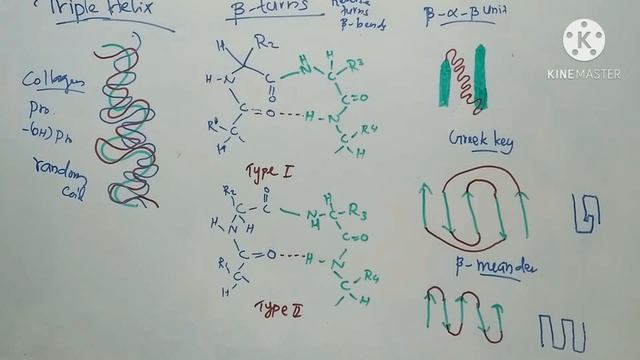 Triple Helix
Collagen
Pro.
-OH) Pro
random
coil
β-turns
Reverse
turns
β-bends
H R2
H-N C R3
C N H
O
C=O ---- H-N C=O
R1 C R4
H C H
Type I
R2 O
C C N H R3
H N H H C
C=O ---- H-N C=O
C R1 R4
H C H
Type II
β-α-β unit
Greek key
β-meander
K
KINEMASTER